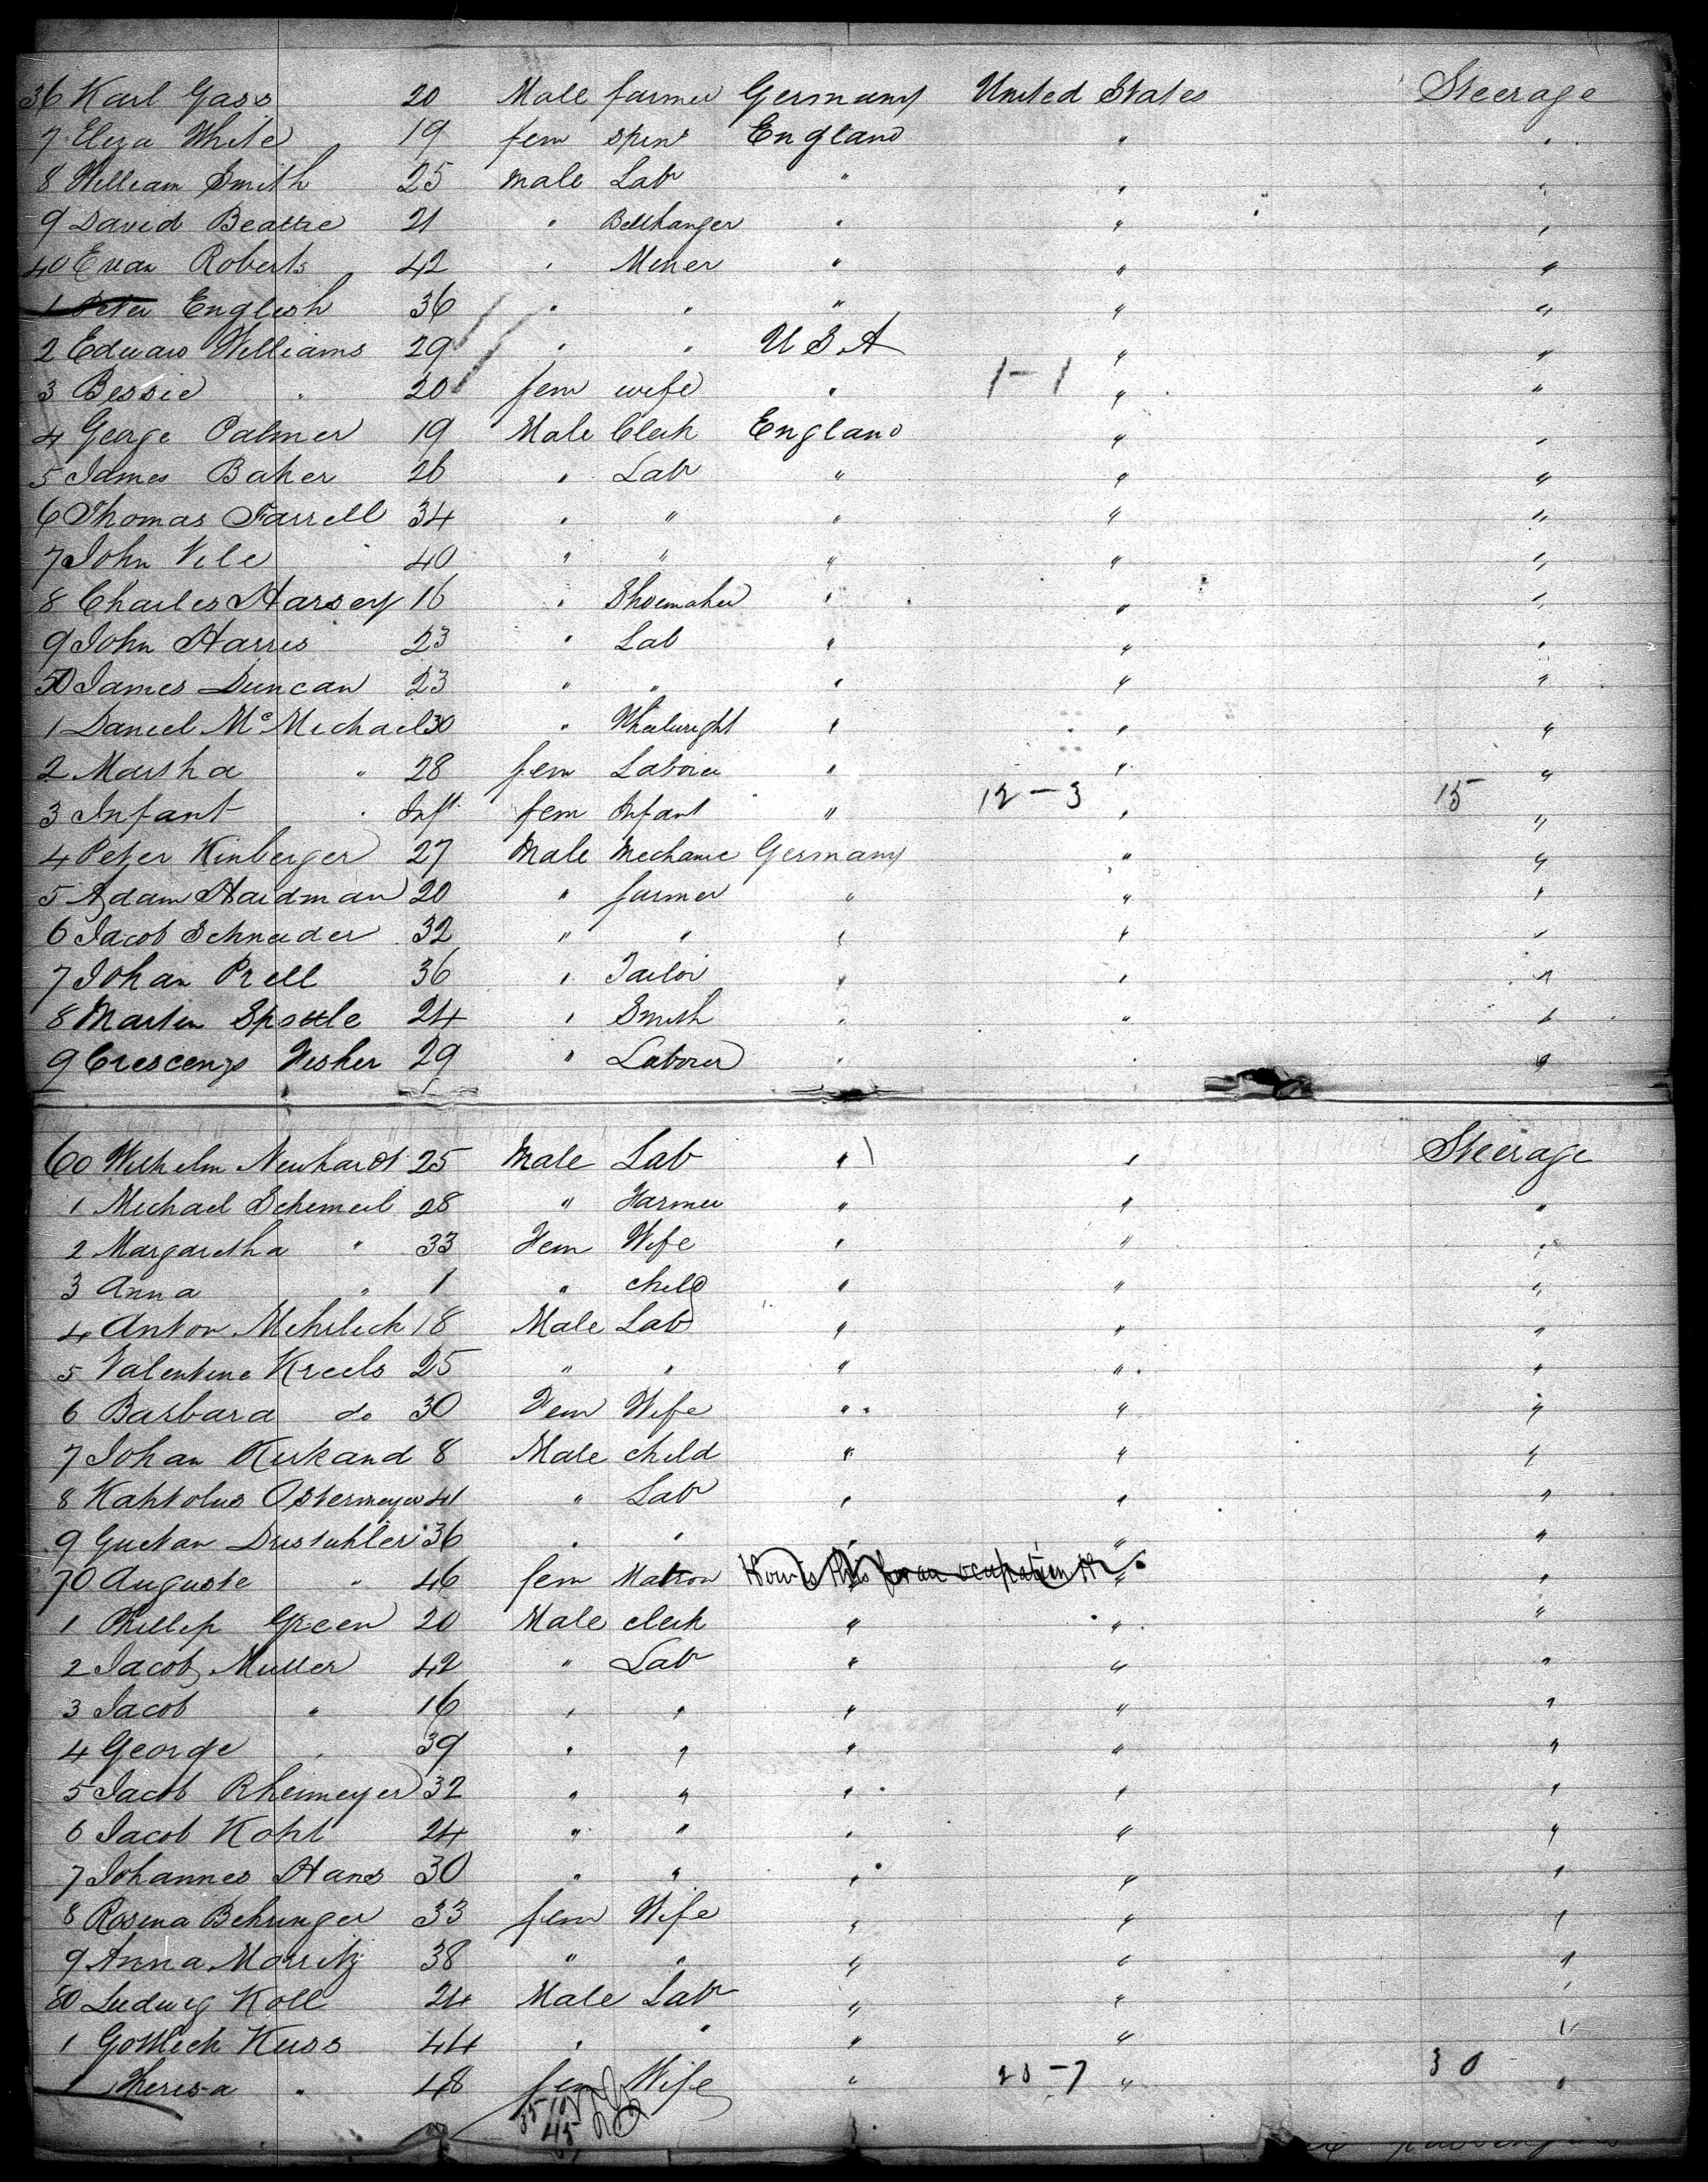 36 Karl Gass 20 Male farmer Germany United States Steerage
7 Eliza White 19 fem spins England " "
8 William Smith 25 male Lab " " "
9 David Beattie 21 " Bellhanger " " "
40 Evan Roberts 42 " Miner " " "
1 Peter English 36 " " " " "
2 Edward Williams 29 " " U S A " "
3 Bessie " 20 fem wife " 1-1 " "
4 George Palmer 19 Male Clerk England " "
5 James Baker 26 " Lab " " "
6 Thomas Farrell 34 " " " " "
7 John Vile 40 " " " " "
8 Charles Harsey 16 " Shoemaker " " "
9 John Harris 23 " Lab " " "
50 James Duncan 23 " " " " "
1 Daniel McMichael 30 " Wheelwright " " "
2 Martha " 28 fem Laborer " " "
3 Infant " Inft fem Infant " 12-3 " 15 "
4 Peter Kinberger 27 Male Mechanic Germany " "
5 Adam Haidman 20 " farmer " " "
6 Jacob Schneider 32 " " " " "
7 Johan Prell 36 " Tailor " " "
8 Martin Spottle 24 " Smith " " "
9 Crescenz Fisher 29 " Laborer " " "
60 Wilhelm Newhardt 25 Male Lab " " Steerage
1 Michael Schemeil 28 " Farmer " " "
2 Margaretha " 33 Fem Wife " " "
3 Anna " 1 " child " " "
4 Anton Mehrlich 18 Male Lab " " "
5 Valentine Kreels 25 " " " " "
6 Barbara do 30 Fem Wife " " "
7 Johan Kirkand 8 Male child " " "
8 Ostermeyer 41 " Lab " " "
9 Gustav 36 " " " " "
70 Auguste " 46 fem Matron How is this for an occupation " "
1 Phillip Green 20 Male clerk " " "
2 Jacob Muller 42 " Lab " " "
3 Jacob " 16 " " " " "
4 George " 39 " " " " "
5 Jacob Rheimeyer 32 " " " " "
6 Jacob Kohl 24 " " " " "
7 Johannes Hans 30 " " " " "
8 Rosina Behringer 33 fem Wife " " "
9 Anna Morritz 38 " " " " "
80 Ludwig Koll 24 Male Lab " " "
1 Gottlieb Kuss 44 " " " " "
Theresa " 48 fem Wife " 23-7 " 30 "
35 10
45